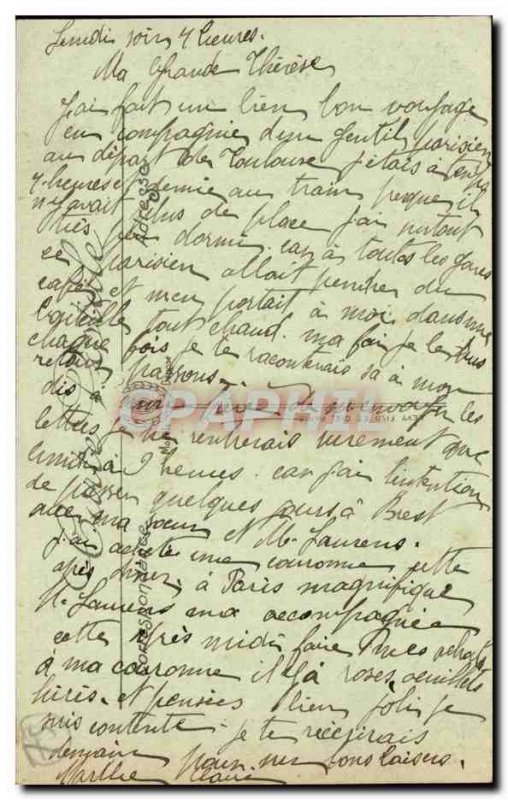 Lundi soir 4 heures.
Ma Grande Thérèse
J'ai fait un bien bon voyage
en compagnie d'un gentil parisien
au départ de Toulouse j'étais à temps
4 heures et demie au train presque il
n'y avait plus de place j'ai surtout
très dormi car à toutes les gares
ce parisien allait prendre du
café et m'en portait à moi dans une
bouteille tout chaud. ma foi je le bus
chaque fois je te raconterais sa à mon
retour passons
dis à les
lettres je ne rentrerais surement que
lundi à 9 heures. car j'ai l'intention
de passer quelques jours à Brest
avec ma sœur et M. Laurens.
j'ai acheté une couronne cette
après diner à Paris magnifique
M. Laurens m'a accompagnée
cette après midi faire mes
à ma couronne il y a roses oeuillets
hiris et pensées bien joli je
suis contente je te récrirais
demain bons baisers.
Marthe Claire
Adresse
Correspondance
CPAPHIL